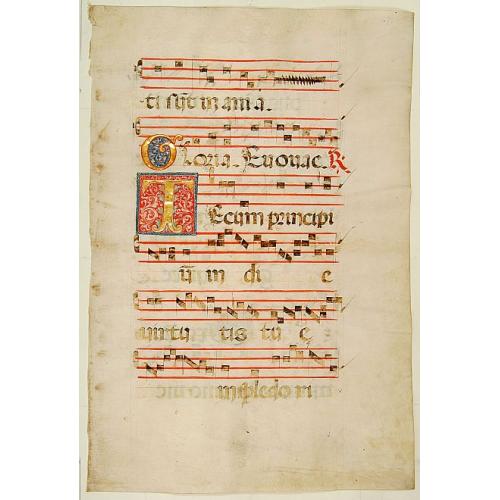 ti sũt in ania.
Gloria. Euouae. R.
Tecum principi
ũ in di e
uirtu tis tu e
in splēdo ri